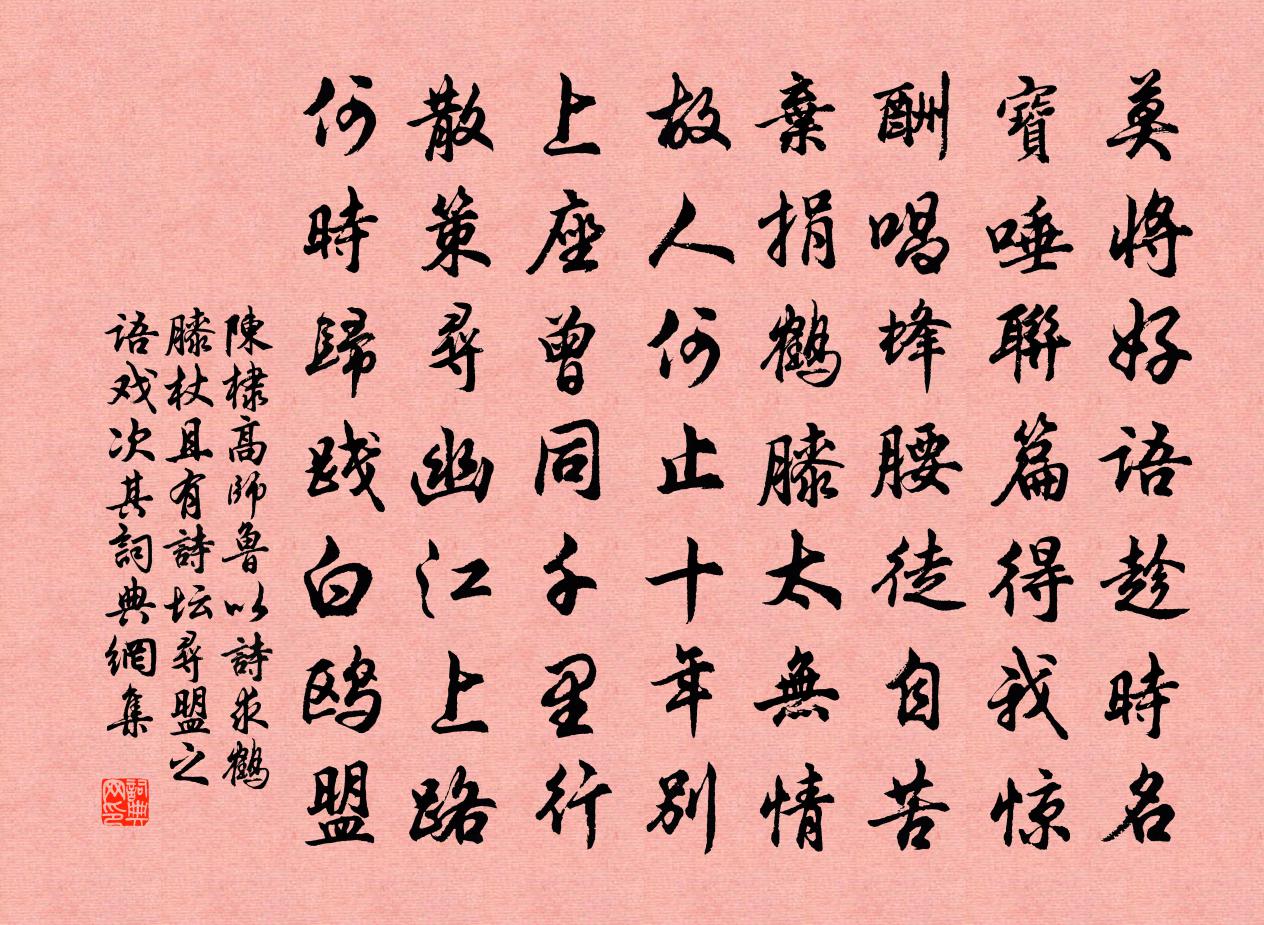 莫將好語趁時名
寶唾聯篇得我惊
酬唱蜂腰徒自苦
棄捐鶴膝太無情
故人何止十年別
上座曾同千里行
散策尋幽江上路
何時歸踐白鸥盟
陳棣高師魯以詩求鶴
膝杖且有詩坛尋盟之
語戏次其詞典網集
詞典網印